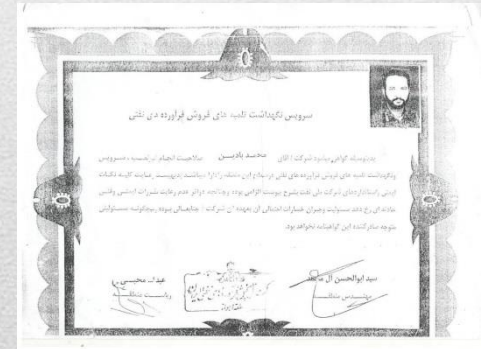 سرویس نگهداشت تلمبه های فروش فرآورده های نفتی
بدینوسیله گواهی میشود شرکت / آقای محمد بادین صلاحیت انجام سرویس
ونگهداشت تلمبه های فروش فرآورده های نفتی در سطح این منطقه را دارا میباشد رعایت کلیه نکات
ایمنی واستانداردهای شرکت ملی نفت بشرح پیوست الزامی بوده و چنانچه دراثر عدم رعایت مقررات ایمنی وفنی
حادثه ای رخ دهد مسئولیت وجبران خسارات احتمالی آن بعهده آن شرکت / جنابعالی بوده و هیچگونه مسئولیتی
متوجه صادرکننده این گواهینامه نخواهد بود.
سید ابوالحسن آل
مهندس منطقه
ریاست منطقه